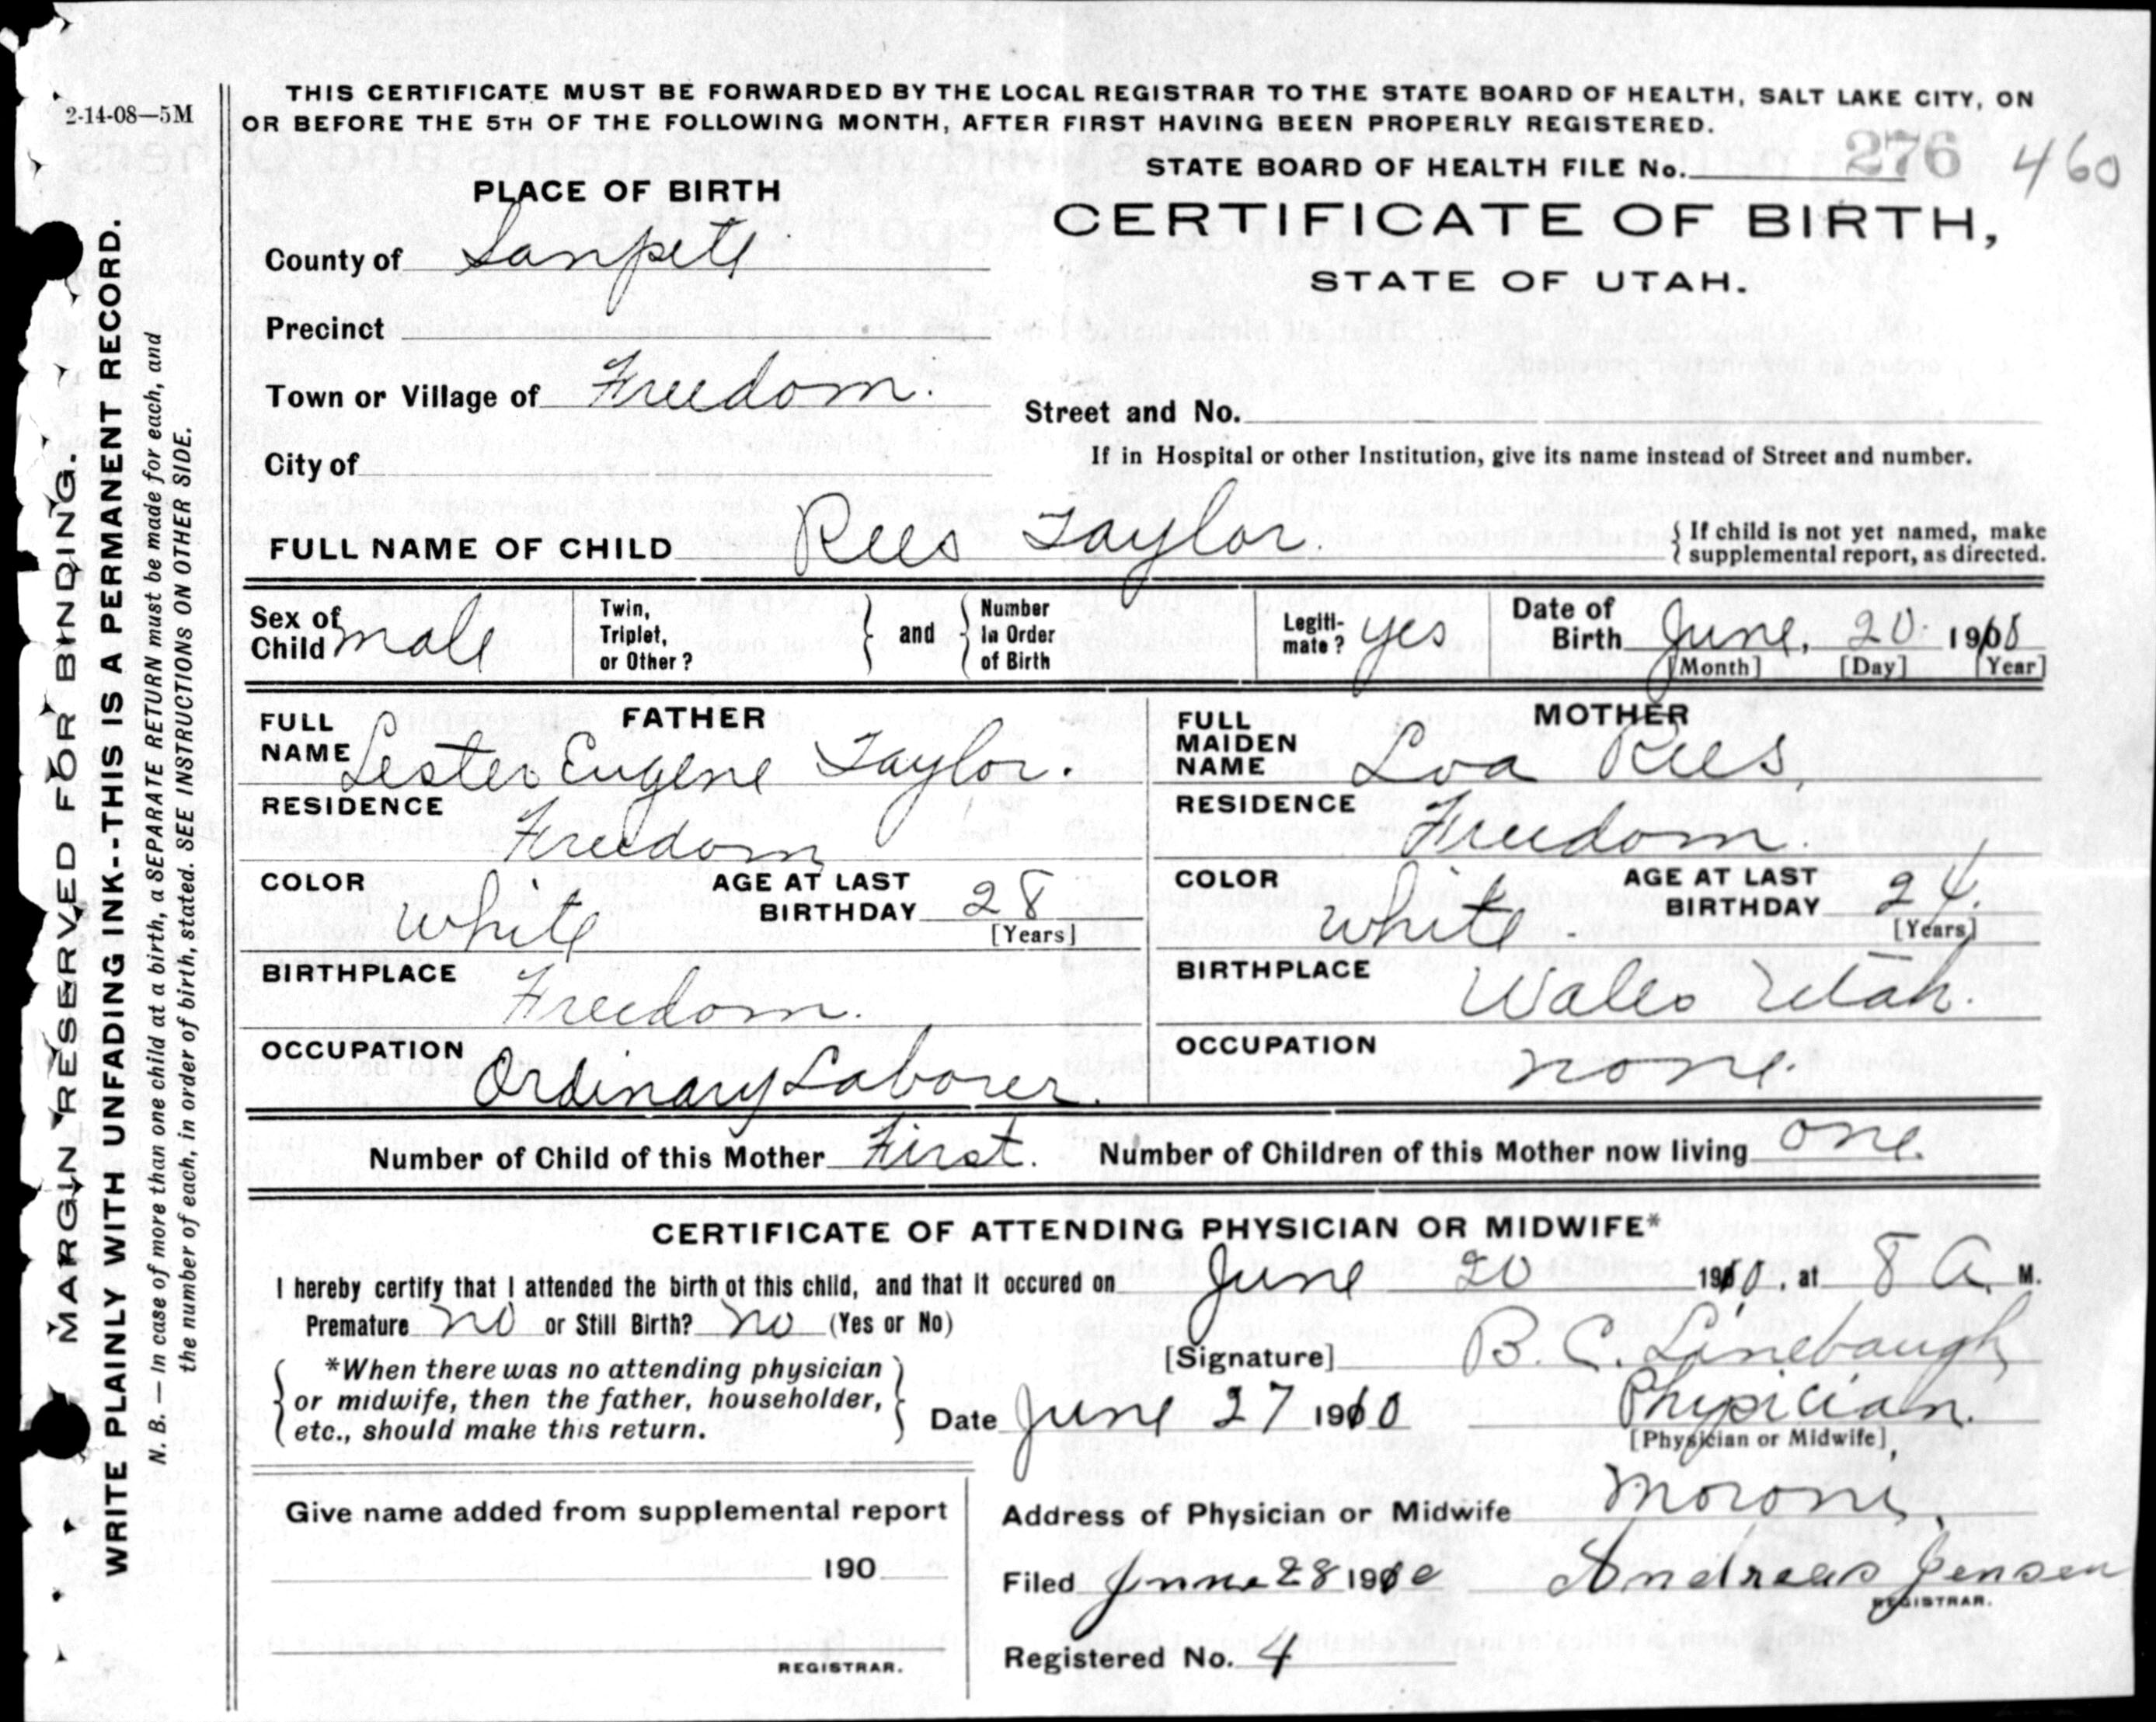 2-14-08—5M
THIS CERTIFICATE MUST BE FORWARDED BY THE LOCAL REGISTRAR TO THE STATE BOARD OF HEALTH, SALT LAKE CITY, ON
OR BEFORE THE 5TH OF THE FOLLOWING MONTH, AFTER FIRST HAVING BEEN PROPERLY REGISTERED.
STATE BOARD OF HEALTH FILE No. 276 460
PLACE OF BIRTH
CERTIFICATE OF BIRTH,
STATE OF UTAH.
County of Sanpete
Precinct
Town or Village of Freedom.
Street and No.
City of
If in Hospital or other Institution, give its name instead of Street and number.
FULL NAME OF CHILD Rees Taylor.
{ If child is not yet named, make
{ supplemental report, as directed.
Sex of Child male
Twin, Triplet, or Other? } and { Number In Order of Birth
Legiti-mate? yes
Date of Birth June, 20 1910
[Month] [Day] [Year]
FATHER
FULL NAME Lester Eugene Taylor.
RESIDENCE Freedom
COLOR White
AGE AT LAST BIRTHDAY 28
[Years]
BIRTHPLACE Freedom.
OCCUPATION Ordinary Laborer.
MOTHER
FULL MAIDEN NAME Loa Rees,
RESIDENCE Freedom.
COLOR White.
AGE AT LAST BIRTHDAY 24.
[Years]
BIRTHPLACE Wales Utah.
OCCUPATION none.
Number of Child of this Mother First. Number of Children of this Mother now living one.
CERTIFICATE OF ATTENDING PHYSICIAN OR MIDWIFE*
I hereby certify that I attended the birth of this child, and that it occured on June 20 1910, at 8 A. M.
Premature no or Still Birth? no (Yes or No)
[Signature] B. C. Linebaugh
*When there was no attending physician
or midwife, then the father, householder,
etc., should make this return.
Date June 27 1910 Physician.
[Physician or Midwife]
Give name added from supplemental report
190
REGISTRAR.
Address of Physician or Midwife Moroni,
Filed June 28 1910 Andreas Jensen
REGISTRAR.
Registered No. 4
MARGIN RESERVED FOR BINDING.
WRITE PLAINLY WITH UNFADING INK--THIS IS A PERMANENT RECORD.
N. B. — In case of more than one child at a birth, a SEPARATE RETURN must be made for each, and
the number of each, in order of birth, stated. SEE INSTRUCTIONS ON OTHER SIDE.